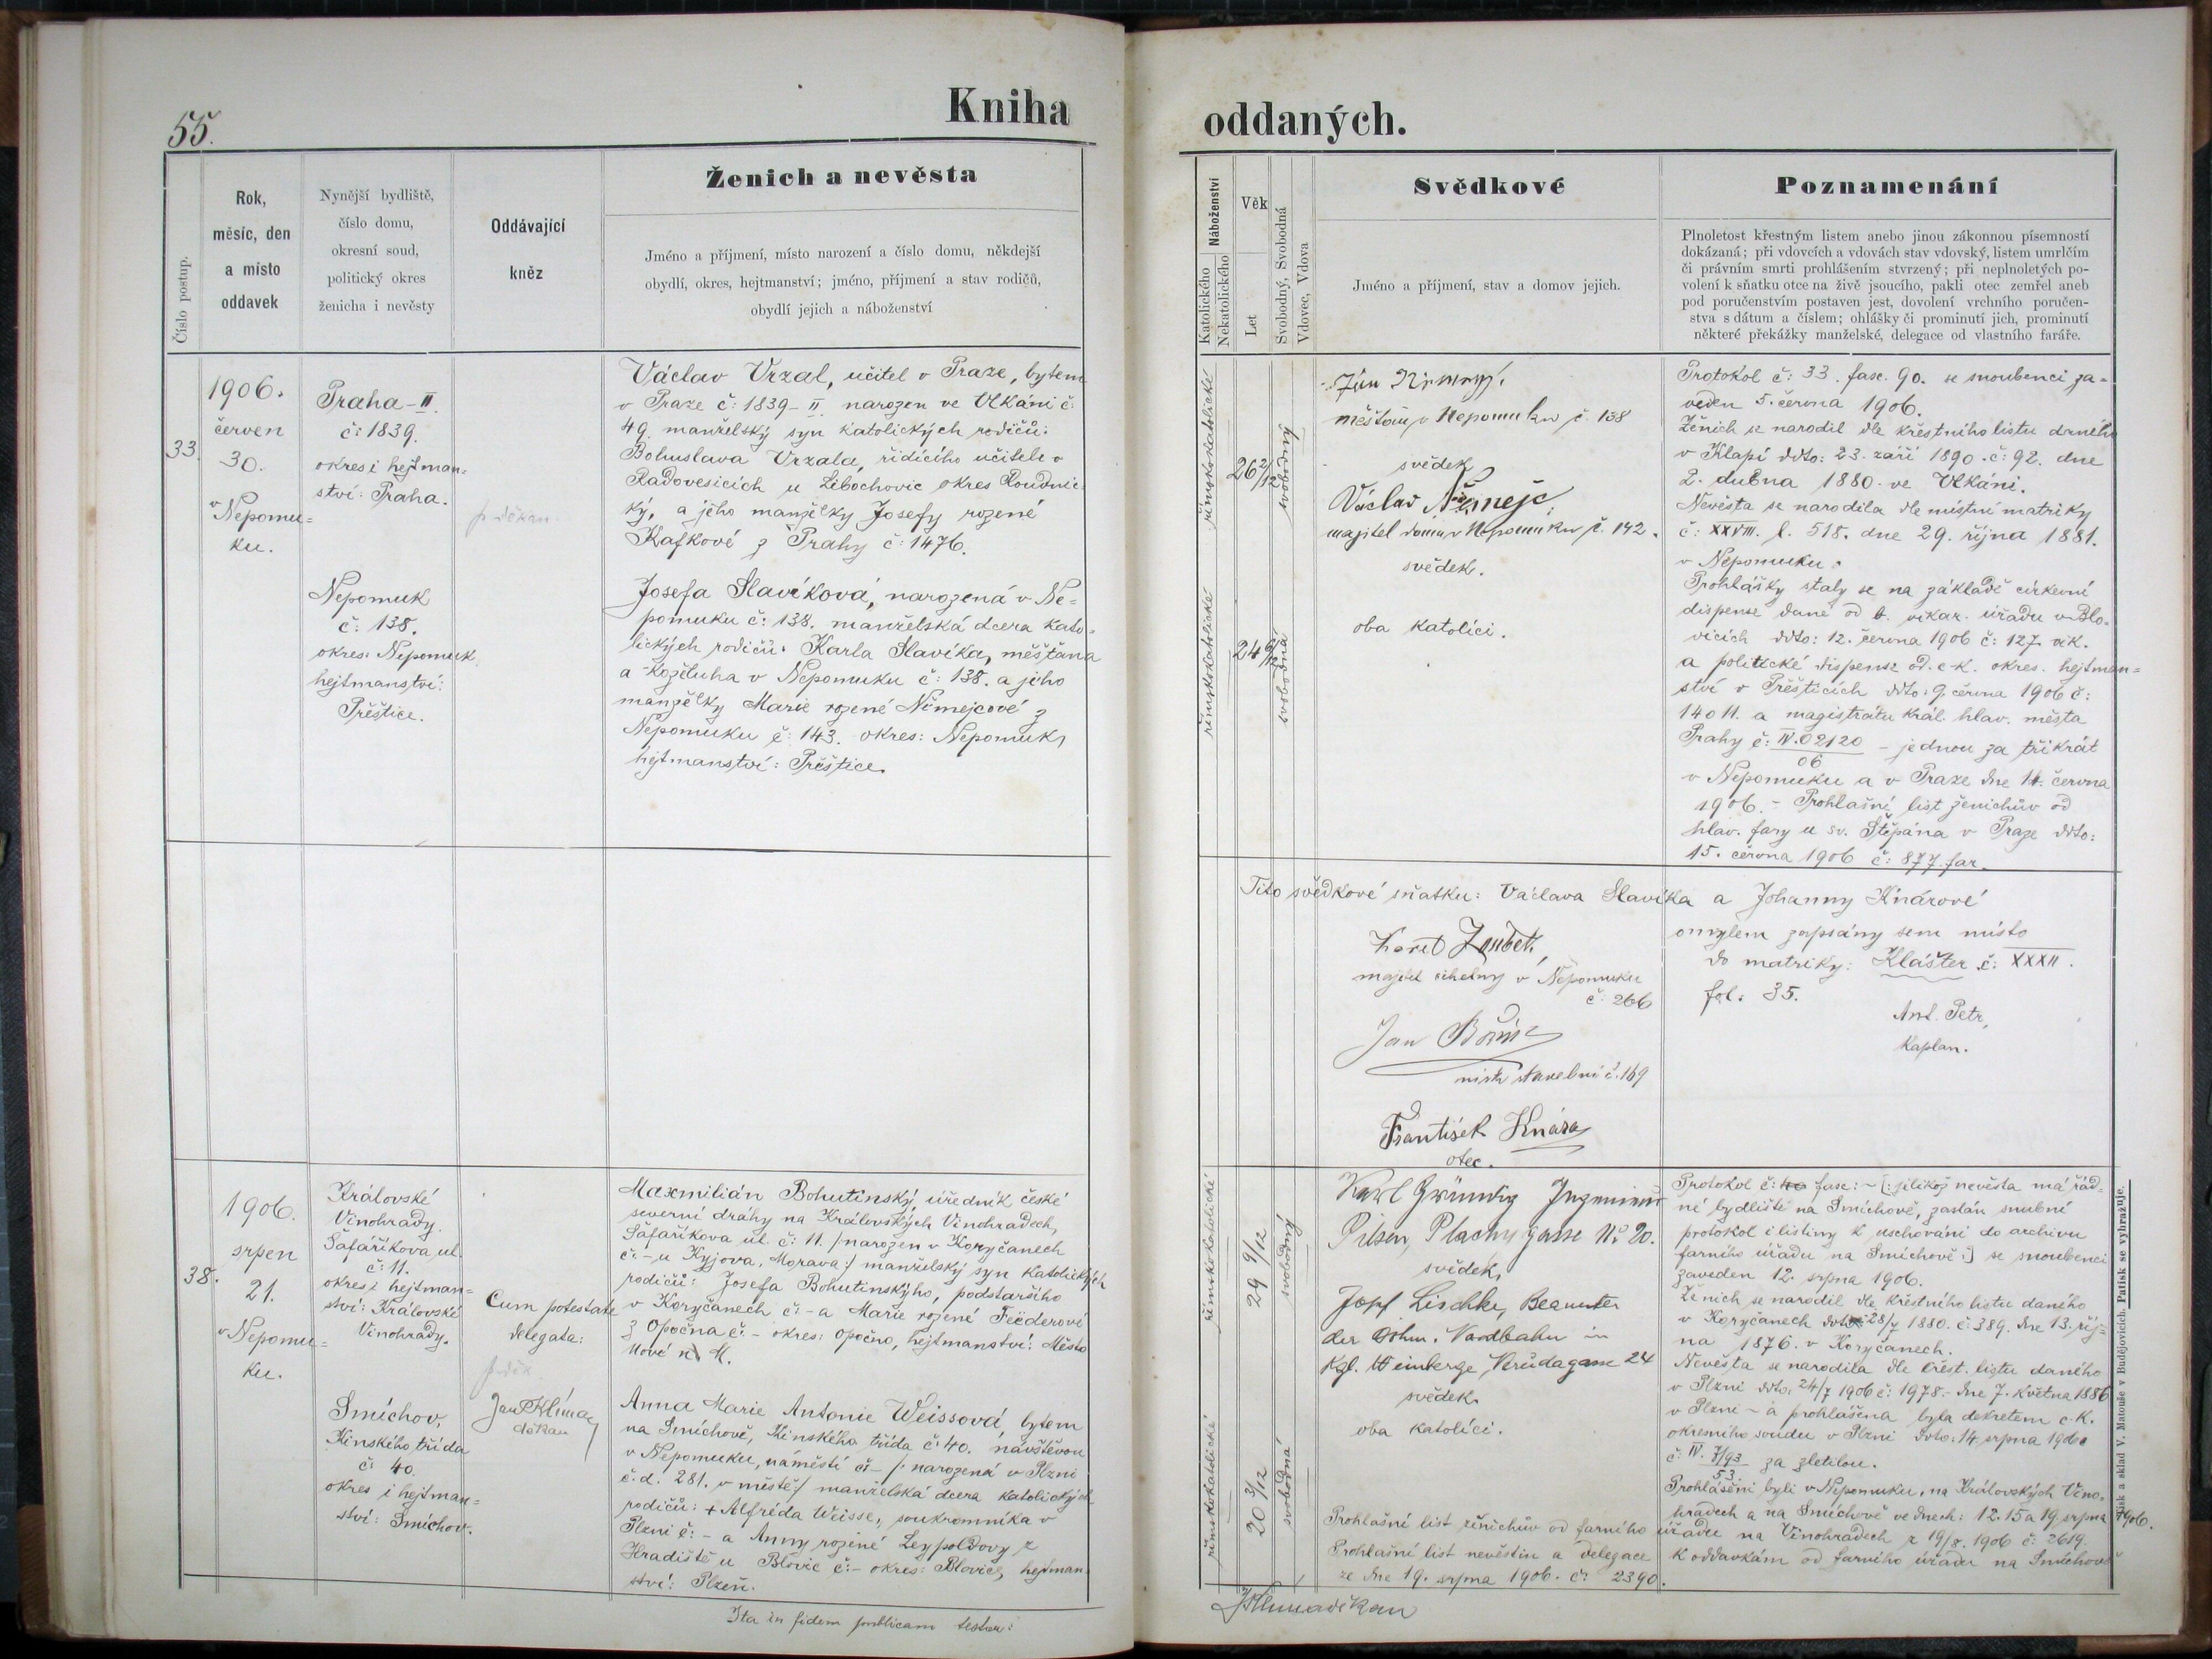 55.
Kniha
Číslo postup.
Rok,
měsíc, den
a místo
oddavek
Nynější bydliště,
číslo domu,
okresní soud,
politický okres
ženicha i nevěsty
Oddávající
kněz
Ženich a nevěsta
Jméno a příjmení, místo narození a číslo domu, někdejší
obydlí, okres, hejtmanství; jméno, příjmení a stav rodičů,
obydlí jejich a náboženství
33.
1906.
červen
30.
v Nepomu=
ku.
Praha-II.
č: 1839.
okres i hejtman=
ství: Praha.
p. děkan
Václav Vrzal, učitel v Praze, bytem
v Praze č: 1839-II narozen ve Vlkáni č:
49. manželský syn katolických rodičů:
Bohuslava Vrzala, řídícího učitele v
Radovesicích u Libochovic okres Roudnic=
ký, a jeho manželky Josefy rozené
Kafkové z Prahy č: 1476.
Nepomuk
č: 138.
okres: Nepomuk
hejtmanství:
Přeštice.
Josefa Slavíková, narozená v Ne=
pomuku č: 138. manželská dcera kato=
lických rodičů: Karla Slavíka, měšťana
a koželuha v Nepomuku č: 138. a jeho
manželky Marie rozené Němejcové z
Nepomuku č: 143. okres: Nepomuk,
hejtmanství: Přeštice.
38.
1906.
srpen
21.
v Nepomu=
ku.
Královské
Vinohrady.
Šafaříkova ul.
č: 11.
okres i hejtman=
ství: Královské
Vinohrady.
Cum potestate
delegata:
p. děk.
Jan P. Klima
děkan
Maxmilián Bohutinský, úředník české
severní dráhy na Královských Vinohradech,
Šafaříkova ul. č: 11. /:narozen v Koryčanech
č: - u Kyjova, Morava:/ manželský syn katolických
rodičů: Josefa Bohutinského, podstaršího
v Koryčanech č: - a Marie rozené Feederové
z Opočna č: - okres: Opočno, hejtmanství: Město
Nové n. M.
Smíchov,
Kinského třída
č: 40.
okres i hejtman=
ství: Smíchov.
Anna Marie Antonie Weissová, bytem
na Smíchově, Kinského třída č: 40. návštěvou
v Nepomuku, náměstí č: - /: narozená v Plzni
č.d. 281. v městě:/ manželská dcera katolických
rodičů: + Alfréda Weisse, soukromníka v
Plzni č: - a Anny rozené Leypoldovy z
Hradiště u Blovic č: - okres: Blovice, hejtman=
ství: Plzeň.
Ita in fidem publicam testor:
oddaných.
Náboženství
Katolického
Nekatolického
Věk
Let
Svobodný, Svobodná
Vdovec, Vdova
Svědkové
Jméno a příjmení, stav a domov jejich.
Poznamenání
Plnoletost křestným listem anebo jinou zákonnou písemností
dokázaná; při vdovcích a vdovách stav vdovský, listem umrlčím
či právním smrti prohlášením stvrzený; při neplnoletých po-
volení k sňatku otce na živě jsoucího, pakli otec zemřel aneb
pod poručenstvím postaven jest, dovolení vrchního poručen-
stva s dátum a číslem; ohlášky či prominutí jich, prominutí
některé překážky manželské, delegace od vlastního faráře.
římskokatolické
26 2/12
svobodný
měšťan v Nepomuku č. 138
svědek
Václav Němejc,
majitel domu v Nepomuku č. 142.
svědek.
oba katolíci.
římskokatolické
24 8/12
svobodná
Protokol č: 33. fasc. 90. se snoubenci za=
veden 5. června 1906.
Ženich se narodil dle křestního listu daného
v Klapí ddto: 23. září 1890. č: 92. dne
2. dubna 1880. ve Vlkáni.
Nevěsta se narodila dle místní matriky
č: XXVIII. l. 518. dne 29. října 1881.
v Nepomuku.
Prohlášky staly se na základě církevní
dispense dané od b. vikar. úřadu v Blo=
vicích ddto: 12. června 1906 č: 127. vik.
a politické dispense od c.k. okres. hejtman=
ství v Přešticích ddto: 9. června 1906 č:
14011. a magistrátu král. hlav. města
Prahy č: IV.02120/06 - jednou za třikrát
v Nepomuku a v Praze dne 14. června
1906. - Prohlašní list ženichův od
hlav. fary u sv. Štěpána v Praze ddto:
15. června 1906 č: 877. far.
Tito svědkové sňatku: Václava Slavíka a Johanny Knárové
omylem zapsány sem místo
do matriky: Klášter č: XXXII.
fol: 35.
Ant. Petr,
kaplan.
Karel Zoubek,
majitel cihelny v Nepomuku
č: 266
Jan
mistr stavební č. 169
František Knára
otec.
římskokatolické
29 9/12
svobodný
Karl Gründig Ingenieur
Pilsen, Plachy gasse No 20.
svědek,
Josef Lischke, Beamter
der böhm. Nordbahn in
Kgl. Weinberge, Verudagasse 24
svědek
oba katolíci.
římskokatolické
20 3/12
svobodná
Protokol č: 40 fasc: - [: jelikož nevěsta má řád=
né bydliště na Smíchově, zaslán snubní
protokol i listiny k uschování do archivu
farního úřadu na Smíchově:] se snoubenci
zaveden 12. srpna 1906.
Ženich se narodil dle křestního listu daného
v Koryčanech ddto: 28/7 1880. č: 389. dne 13. říj=
na 1876. v Koryčanech.
Nevěsta se narodila dle křest. listu daného
v Plzni ddto: 24/7 1906 č: 1978. - dne 7. května 1886
v Plzni - a prohlášena byla dekretem c.k.
okresního soudu v Plzni ddto: 14. srpna 1906
č: IV. 7/93 53 za zletilou.
Prohlášeni byli v Nepomuku, na Královských Vino=
hradech a na Smíchově ve dnech: 12. 15 a 19. srpna 1906.
Prohlašní list ženichův od farního úřadu na Vinohradech z 19/8. 1906 č: 2619.
Prohlašní list nevěstin a delegace k oddavkám od farního úřadu na Smíchově
ze dne 19. srpna 1906. č: 2390.
JPKlima děkan
Tisk a sklad V. Matouše v Budějovicích. Patisk se vyhražuje.